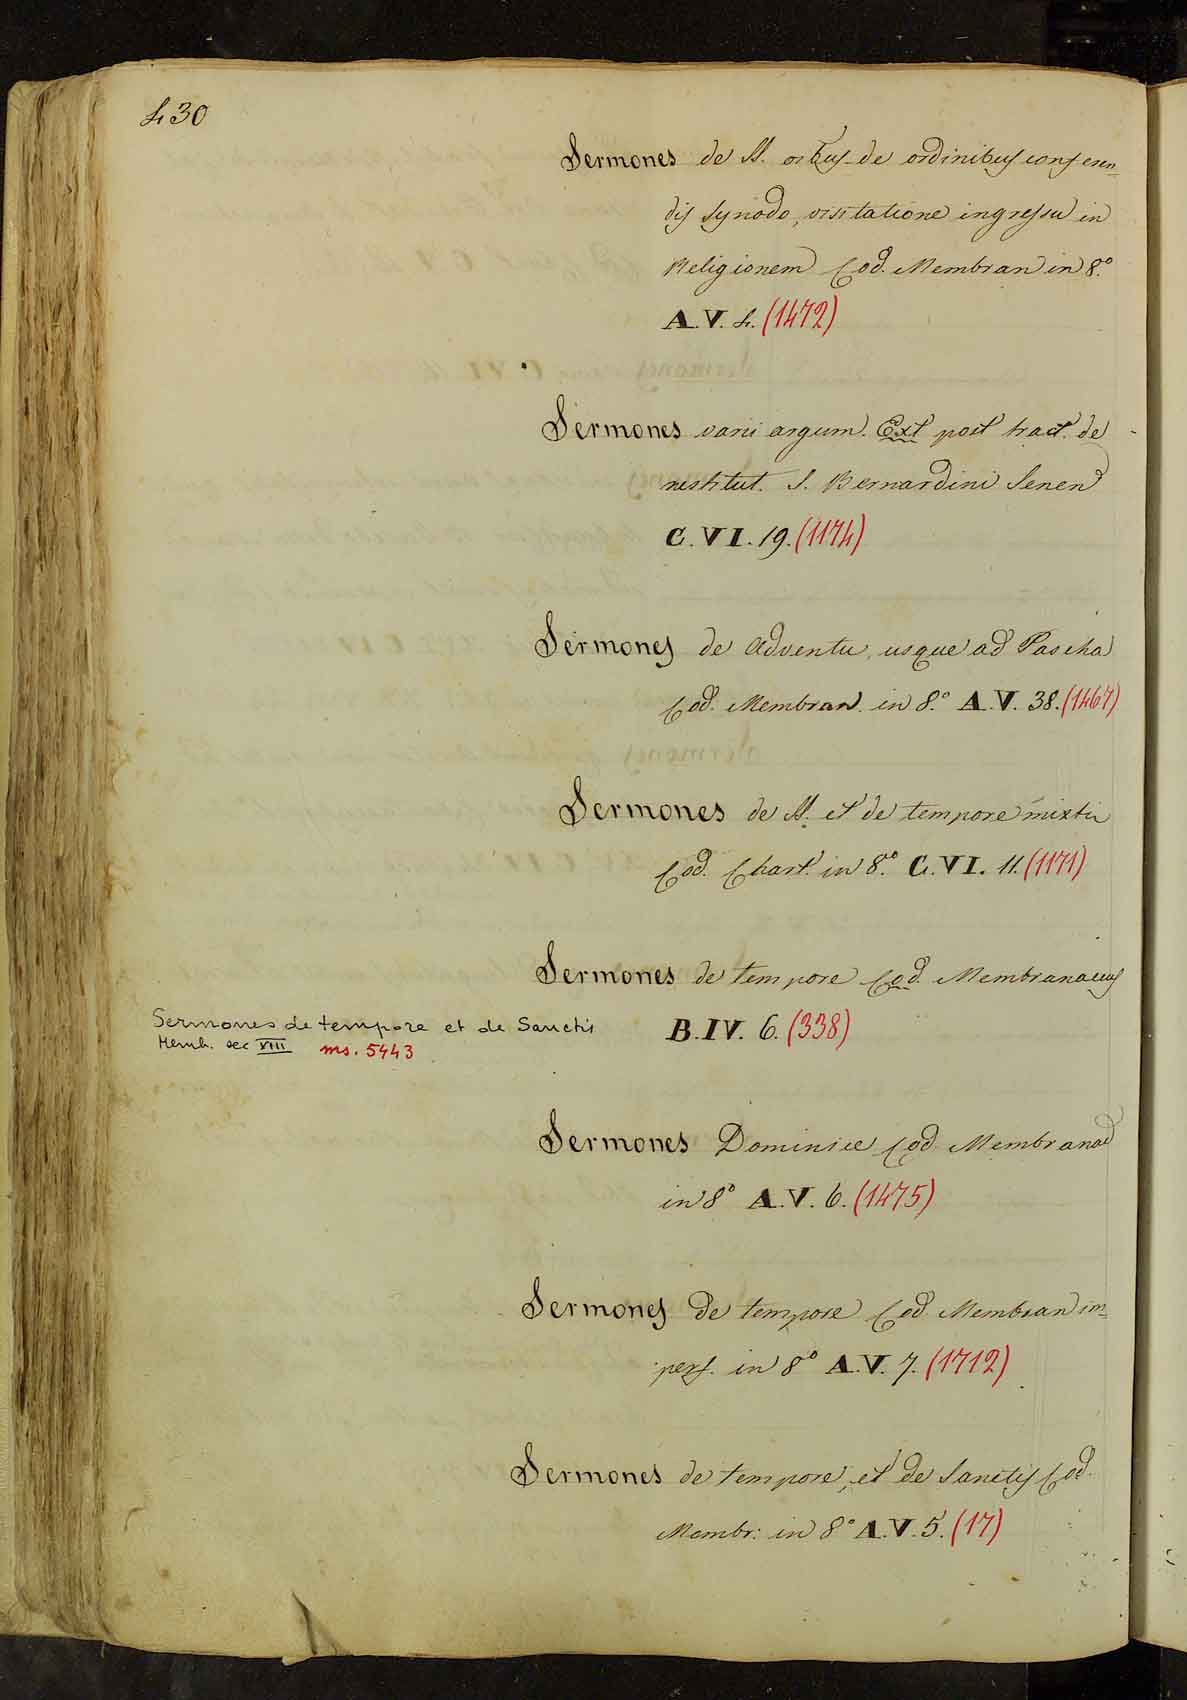 430
Sermones de SS. orbus de ordinibus conferen-
dis Synodo, visitatione ingressu in
Religionem Cod. Membran in 8.º
A.V. 4. (1472)
Sermones varii argum. Ext post tract. de
restitut. S. Bernardini Senen
C.VI. 19. (1174)
Sermones de Adventu usque ad Pascha
Cod. Membran. in 8.º A.V. 38. (1467)
Sermones de SS. et de tempore mixtis
Cod. Chart. in 8.º C.VI. 11. (1171)
Sermones de tempore Cod. Membranaceus
B.IV. 6. (338)
Sermones de tempore et de Sanctis
Memb. sec XIII ms. 5443
Sermones Dominice Cod. Membranac
in 8º A.V. 6. (1475)
Sermones de tempore Cod Membran im-
perf. in 8º A.V. 7. (1712)
Sermones de tempore, et de Sanctis Cod.
Membr: in 8º A.V. 5. (17)